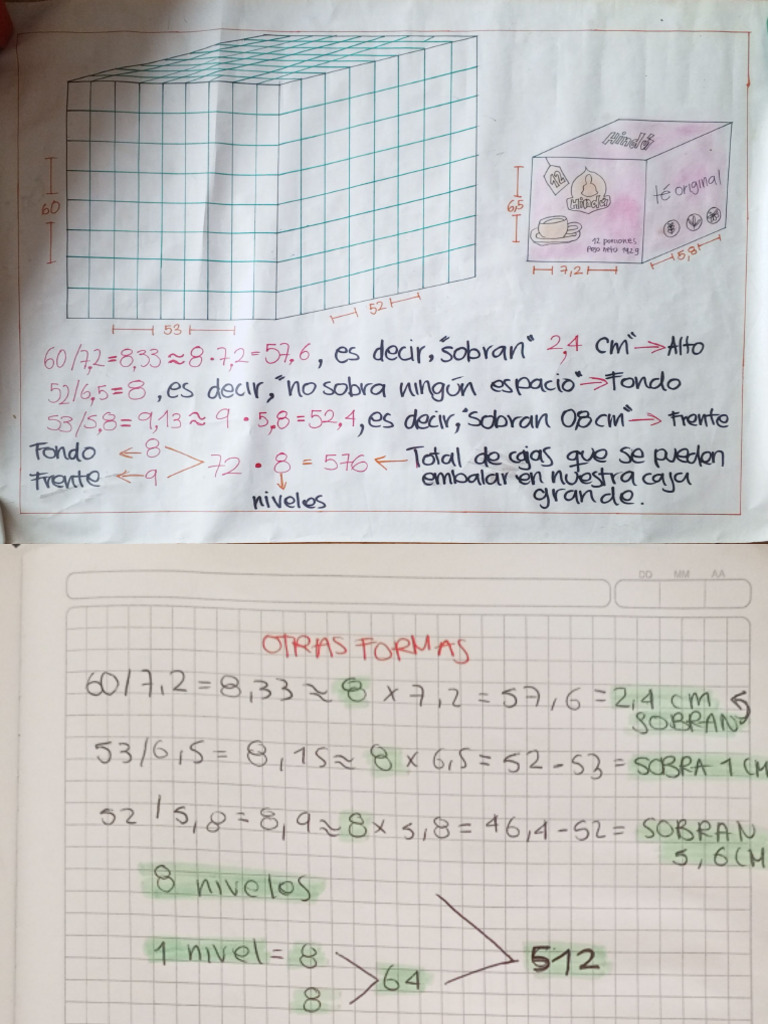 Hindú
12
Hindú
té original
12 porciones
60
6,5
7,2
5,8
53
52
60/7,2=8,33≈8·7,2=57,6, es decir, "sobran" 2,4 cm"→Alto
52/6,5=8, es decir, "no sobra ningún espacio"→Fondo
53/5,8=9,13≈9·5,8=52,4, es decir, "sobran 0,8cm"→Frente
Fondo ←8
Frente ←9
72·8=576←Total de cajas que se pueden
embalar en nuestra caja
grande.
niveles
DD MM AA
OTRAS FORMAS
60/7,2=8,33≈8×7,2=57,6=2,4 cm
SOBRAN
53/6,5=8,15≈8×6,5=52-53=SOBRA 1 CM
52/5,8=8,9≈8×5,8=46,4-52=SOBRAN
5,6 CM
8 niveles
1 nivel=8
8
64
512